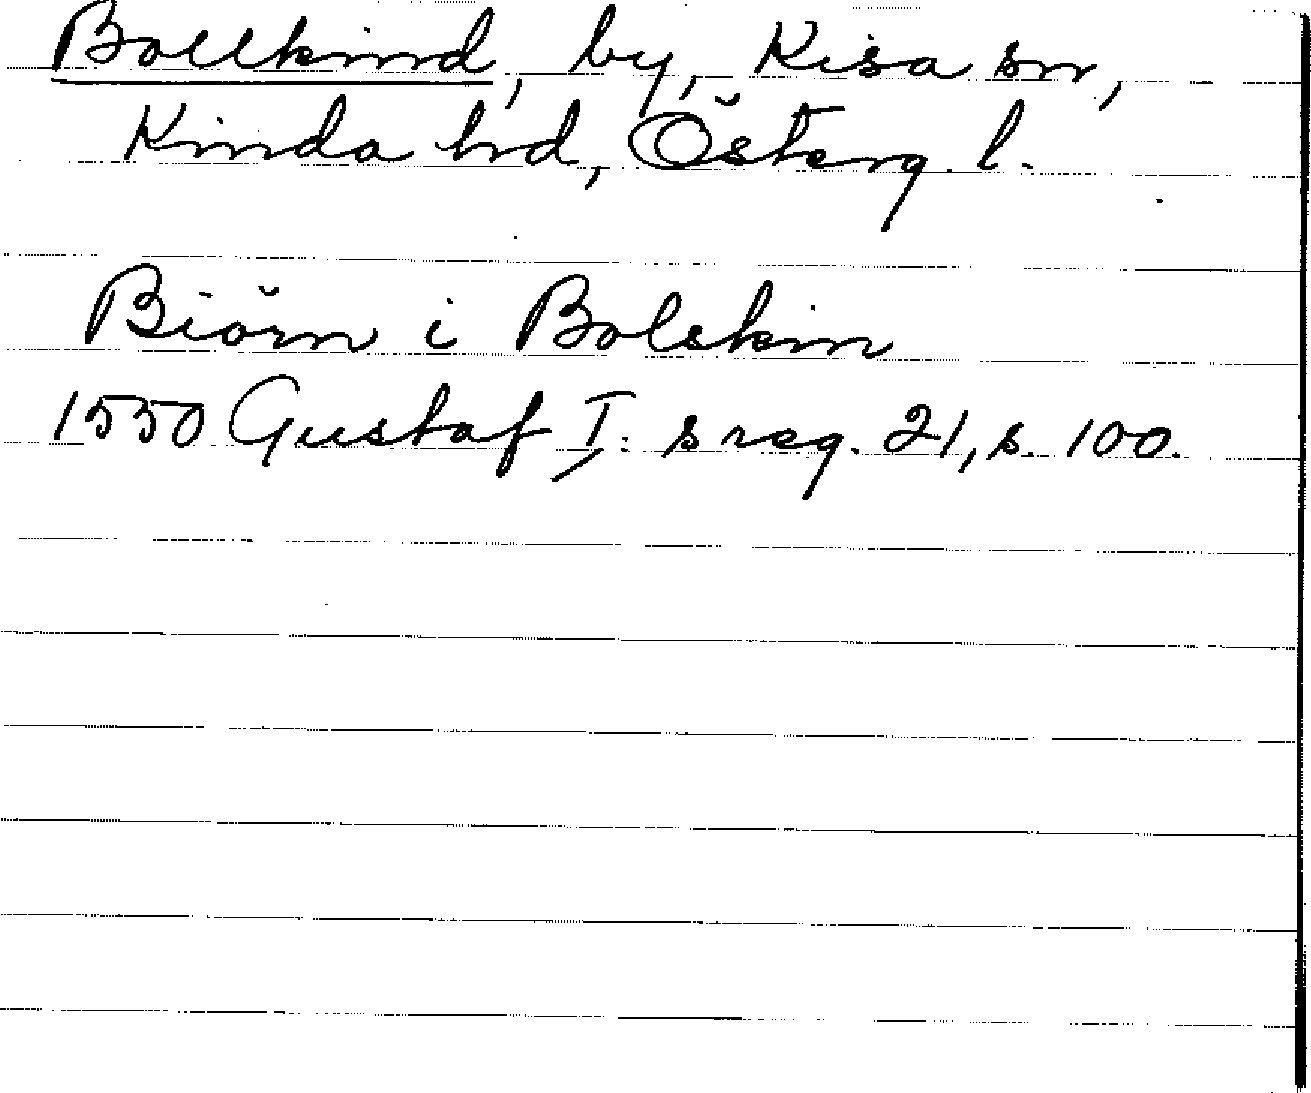 Bollkind, by, Kisa sn,
Kinda hd, Österg. l.
Biörn i Bolskin
1550 Gustaf I:s reg. 21, s. 100.